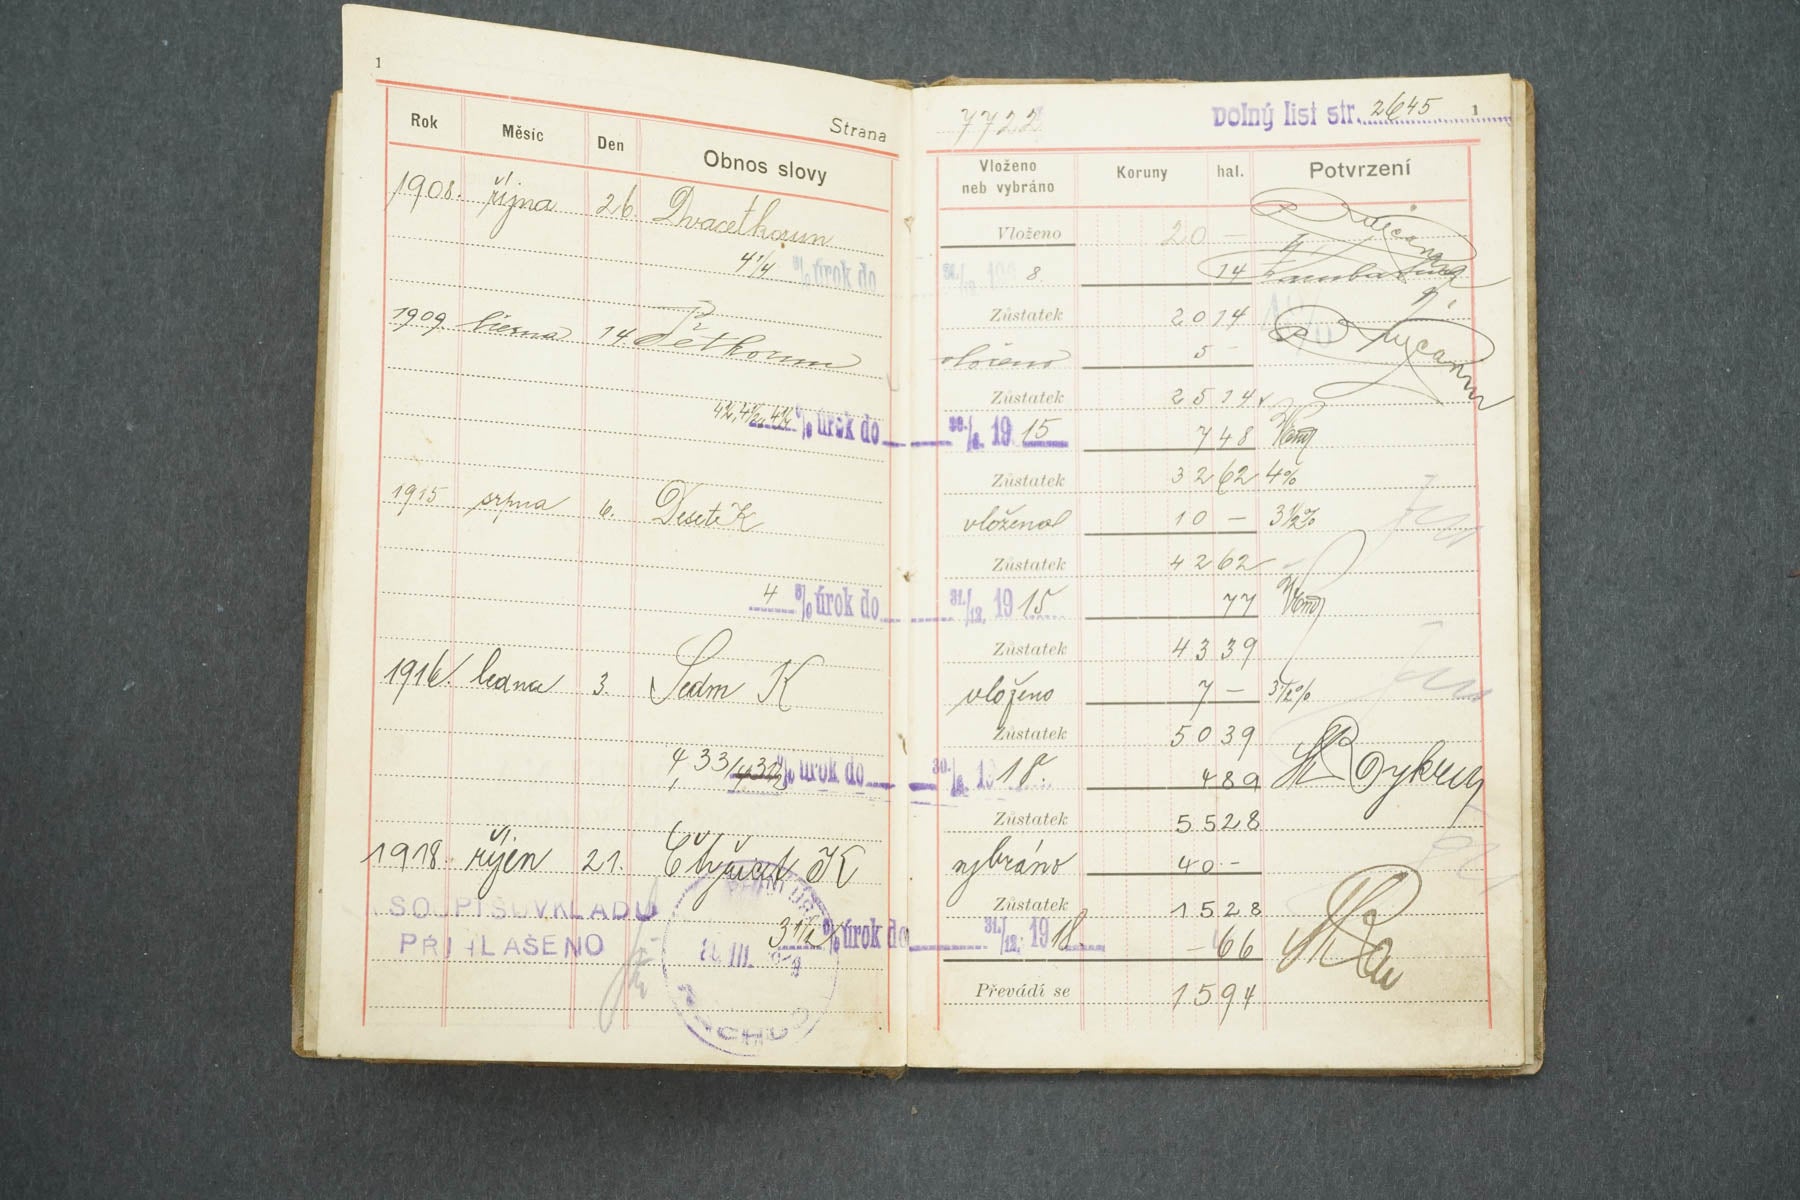 1
Strana
Rok Měsíc Den Obnos slovy
1908. října 26. Dvacetkorun
4 1/4 % úrok do
1909 14. Pětkorun
4 1/4 % úrok do
1915 srpna 6. Deset K
4 % úrok do
1916. ledna 3. Sedm K
% úrok do
1918. říjen 21. Čtyřicet K
SOUPIS VKLADŮ
PŘIHLÁŠENO
3 1/2 % úrok do
III.
7722 Volný list str. 2645 1
Vloženo neb vybráno Koruny hal. Potvrzení
Vloženo 20 —
31./12. 190 8. 14
Zůstatek 20 14
vloženo 5 —
Zůstatek 25 14
30./6. 19 15 7 48
Zůstatek 32 62 4%
vloženo 10 — 3 1/2%
Zůstatek 42 62
31./12. 19 15. 77
Zůstatek 43 39
vloženo 7 — 3 1/2%
Zůstatek 50 39
30./6. 19 18. 4 89
Zůstatek 55 28
vybráno 40 -
Zůstatek 15 28
31./12. 19 18 — 66
Převádí se 15 94